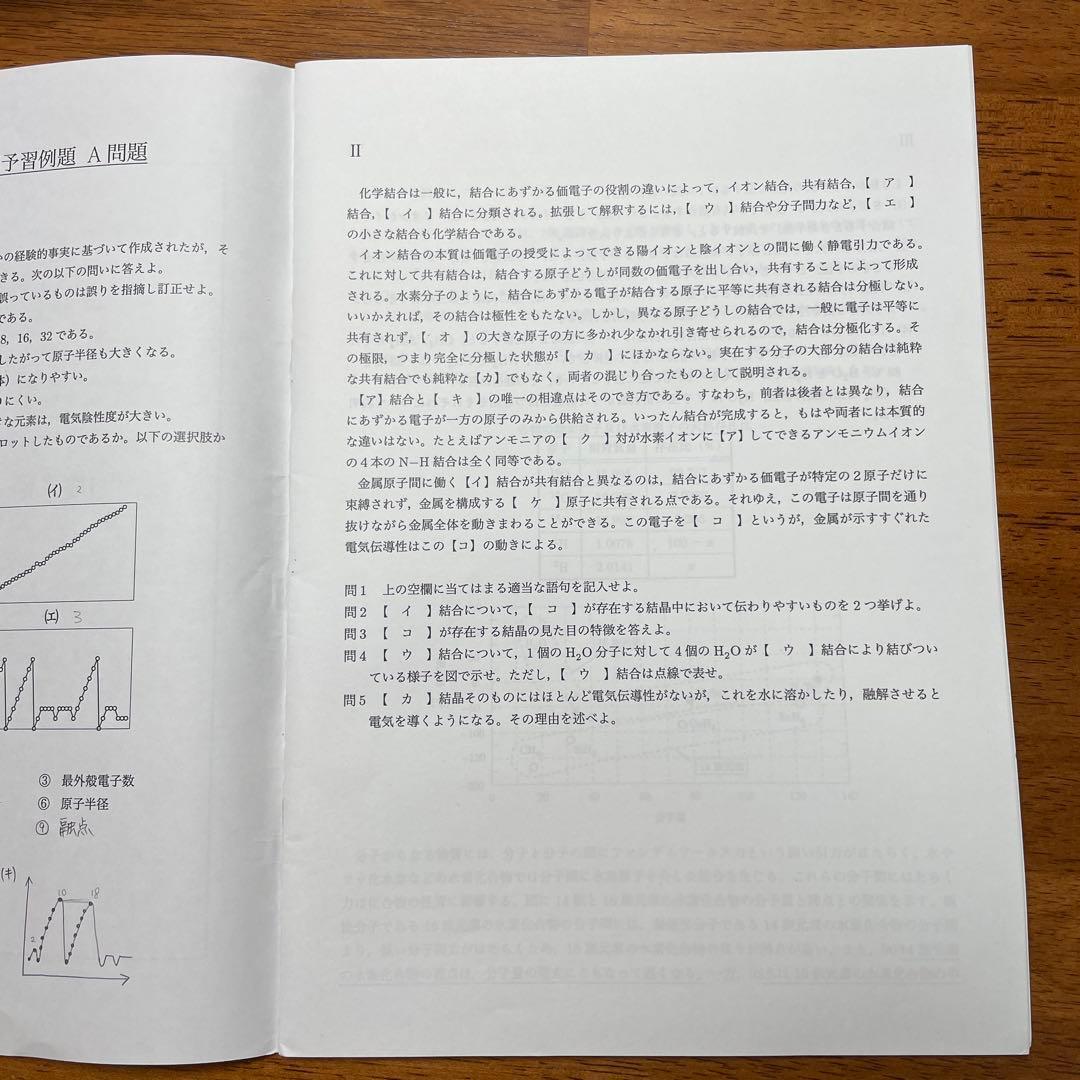 予習例題 A 問題
の経験的事実に基づいて作成されたが，そ
きる。次の以下の問いに答えよ。
誤っているものは誤りを指摘し訂正せよ。
である。
8, 16, 32 である。
したがって原子半径も大きくなる。
体）になりやすい。
りにくい。
な元素は，電気陰性度が大きい。
ロットしたものであるか。以下の選択肢か
(イ) 2
(エ) 3
③ 最外殻電子数
⑥ 原子半径
⑨ 融点
(キ)
2 10 18
II
化学結合は一般に，結合にあずかる価電子の役割の違いによって，イオン結合，共有結合，【 ア 】
結合，【 イ 】結合に分類される。拡張して解釈するには，【 ウ 】結合や分子間力など，【 エ 】
の小さな結合も化学結合である。
イオン結合の本質は価電子の授受によってできる陽イオンと陰イオンとの間に働く静電引力である。
これに対して共有結合は，結合する原子どうしが同数の価電子を出し合い，共有することによって形成
される。水素分子のように，結合にあずかる電子が結合する原子に平等に共有される結合は分極しない。
いいかえれば，その結合は極性をもたない。しかし，異なる原子どうしの結合では，一般に電子は平等に
共有されず，【 オ 】の大きな原子の方に多かれ少なかれ引き寄せられるので，結合は分極化する。そ
の極限，つまり完全に分極した状態が【 カ 】にほかならない。実在する分子の大部分の結合は純粋
な共有結合でも純粋な【カ】でもなく，両者の混じり合ったものとして説明される。
【ア】結合と【 キ 】の唯一の相違点はそのでき方である。すなわち，前者は後者とは異なり，結合
にあずかる電子が一方の原子のみから供給される。いったん結合が完成すると，もはや両者には本質的
な違いはない。たとえばアンモニアの【 ク 】対が水素イオンに【ア】してできるアンモニウムイオン
の４本の N−H 結合は全く同等である。
金属原子間に働く【イ】結合が共有結合と異なるのは，結合にあずかる価電子が特定の２原子だけに
束縛されず，金属を構成する【 ケ 】原子に共有される点である。それゆえ，この電子は原子間を通り
抜けながら金属全体を動きまわることができる。この電子を【 コ 】というが，金属が示すすぐれた
電気伝導性はこの【コ】の動きによる。
問１ 上の空欄に当てはまる適当な語句を記入せよ。
問２ 【 イ 】結合について，【 コ 】が存在する結晶中において伝わりやすいものを２つ挙げよ。
問３ 【 コ 】が存在する結晶の見た目の特徴を答えよ。
問４ 【 ウ 】結合について，１個の H₂O 分子に対して４個の H₂O が【 ウ 】結合により結びつい
ている様子を図で示せ。ただし，【 ウ 】結合は点線で表せ。
問５ 【 カ 】結晶そのものにはほとんど電気伝導性がないが，これを水に溶かしたり，融解させると
電気を導くようになる。その理由を述べよ。